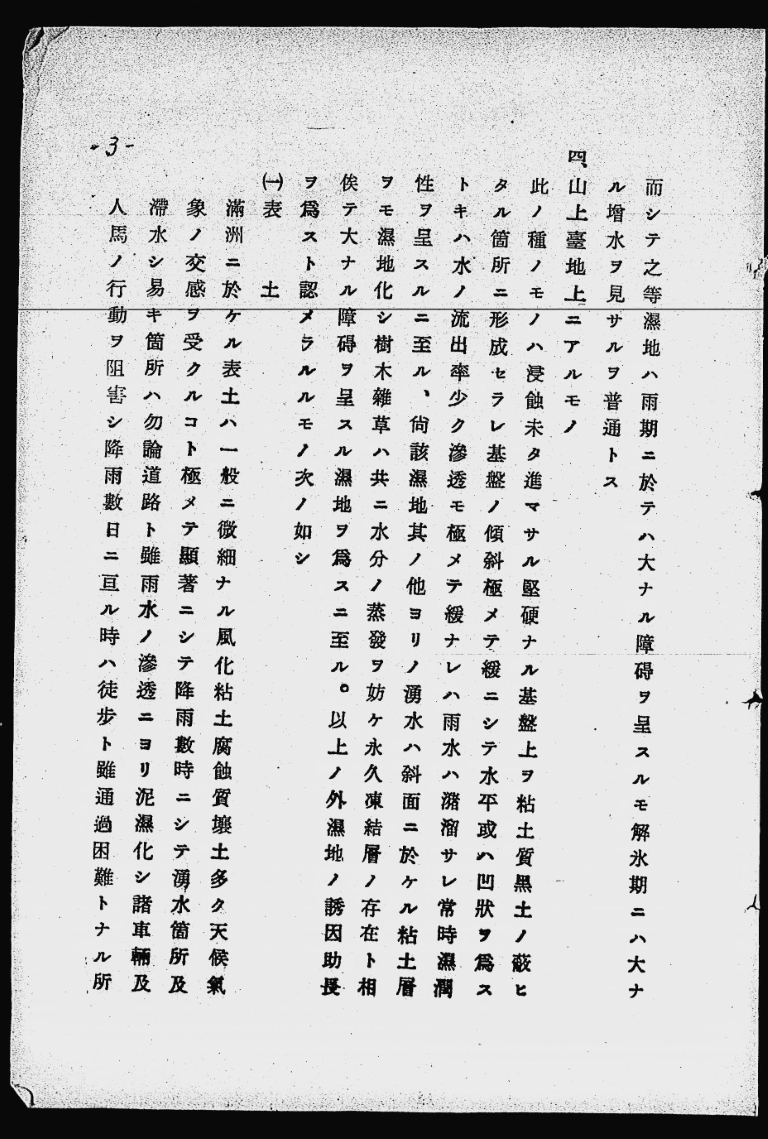 -3-
而シテ之等濕地ハ雨期ニ於テハ大ナル障碍ヲ呈スルモ解氷期ニハ大ナ
ル增水ヲ見サルヲ普通トス
四、山上臺地上ニアルモノ
此ノ種ノモノハ浸蝕未タ進マサル堅硬ナル基盤上ヲ粘土質黑土ノ蔽ヒ
タル箇所ニ形成セラレ基盤ノ傾斜極メテ緩ニシテ水平或ハ凹狀ヲ爲ス
トキハ水ノ流出率少ク滲透モ極メテ緩ナレハ雨水ハ瀦溜サレ常時濕潤
性ヲ呈スルニ至ル、尙該濕地其ノ他ヨリノ湧水ハ斜面ニ於ケル粘土層
ヲモ濕地化シ樹木雜草ハ共ニ水分ノ蒸發ヲ妨ケ永久凍結層ノ存在ト相
俟テ大ナル障碍ヲ呈スル濕地ヲ爲スニ至ル。以上ノ外濕地ノ誘因助長
ヲ爲スト認メラルルモノ次ノ如シ
㈠表　土
滿洲ニ於ケル表土ハ一般ニ微細ナル風化粘土腐蝕質壤土多ク天候氣
象ノ交感ヲ受クルコト極メテ顯著ニシテ降雨數時ニシテ湧水箇所及
滯水シ易キ箇所ハ勿論道路ト雖雨水ノ滲透ニヨリ泥濕化シ諸車輛及
人馬ノ行動ヲ阻害シ降雨數日ニ亘ル時ハ徒步ト雖通過困難トナル所